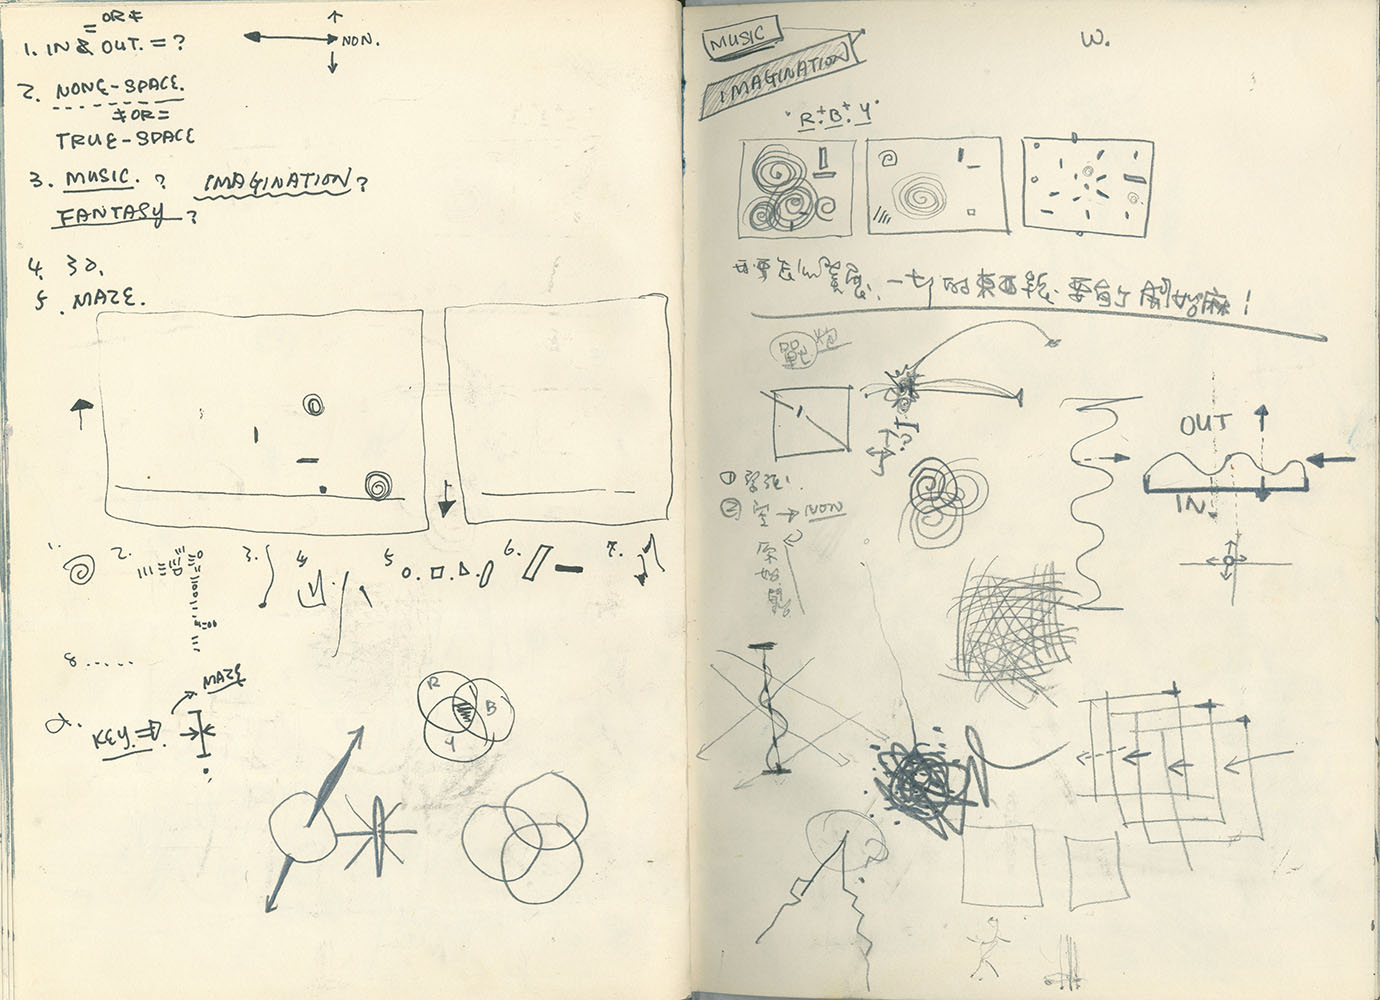 = OR ≠
1. IN & OUT. = ?
NON.
2. NONE-SPACE.
≠ OR =
TRUE-SPACE
3. MUSIC. ? IMAGINATION?
FANTASY ?
4. 3D.
5. MAZE.
1.
2.
3.
4
5
6.
7.
8.....
MAZE
KEY.
R
B
Y
MUSIC
W.
IMAGINATION
"R+B+Y"
一切的東西都要
OUT
IN.
①緊張.
②空→NON
原始點